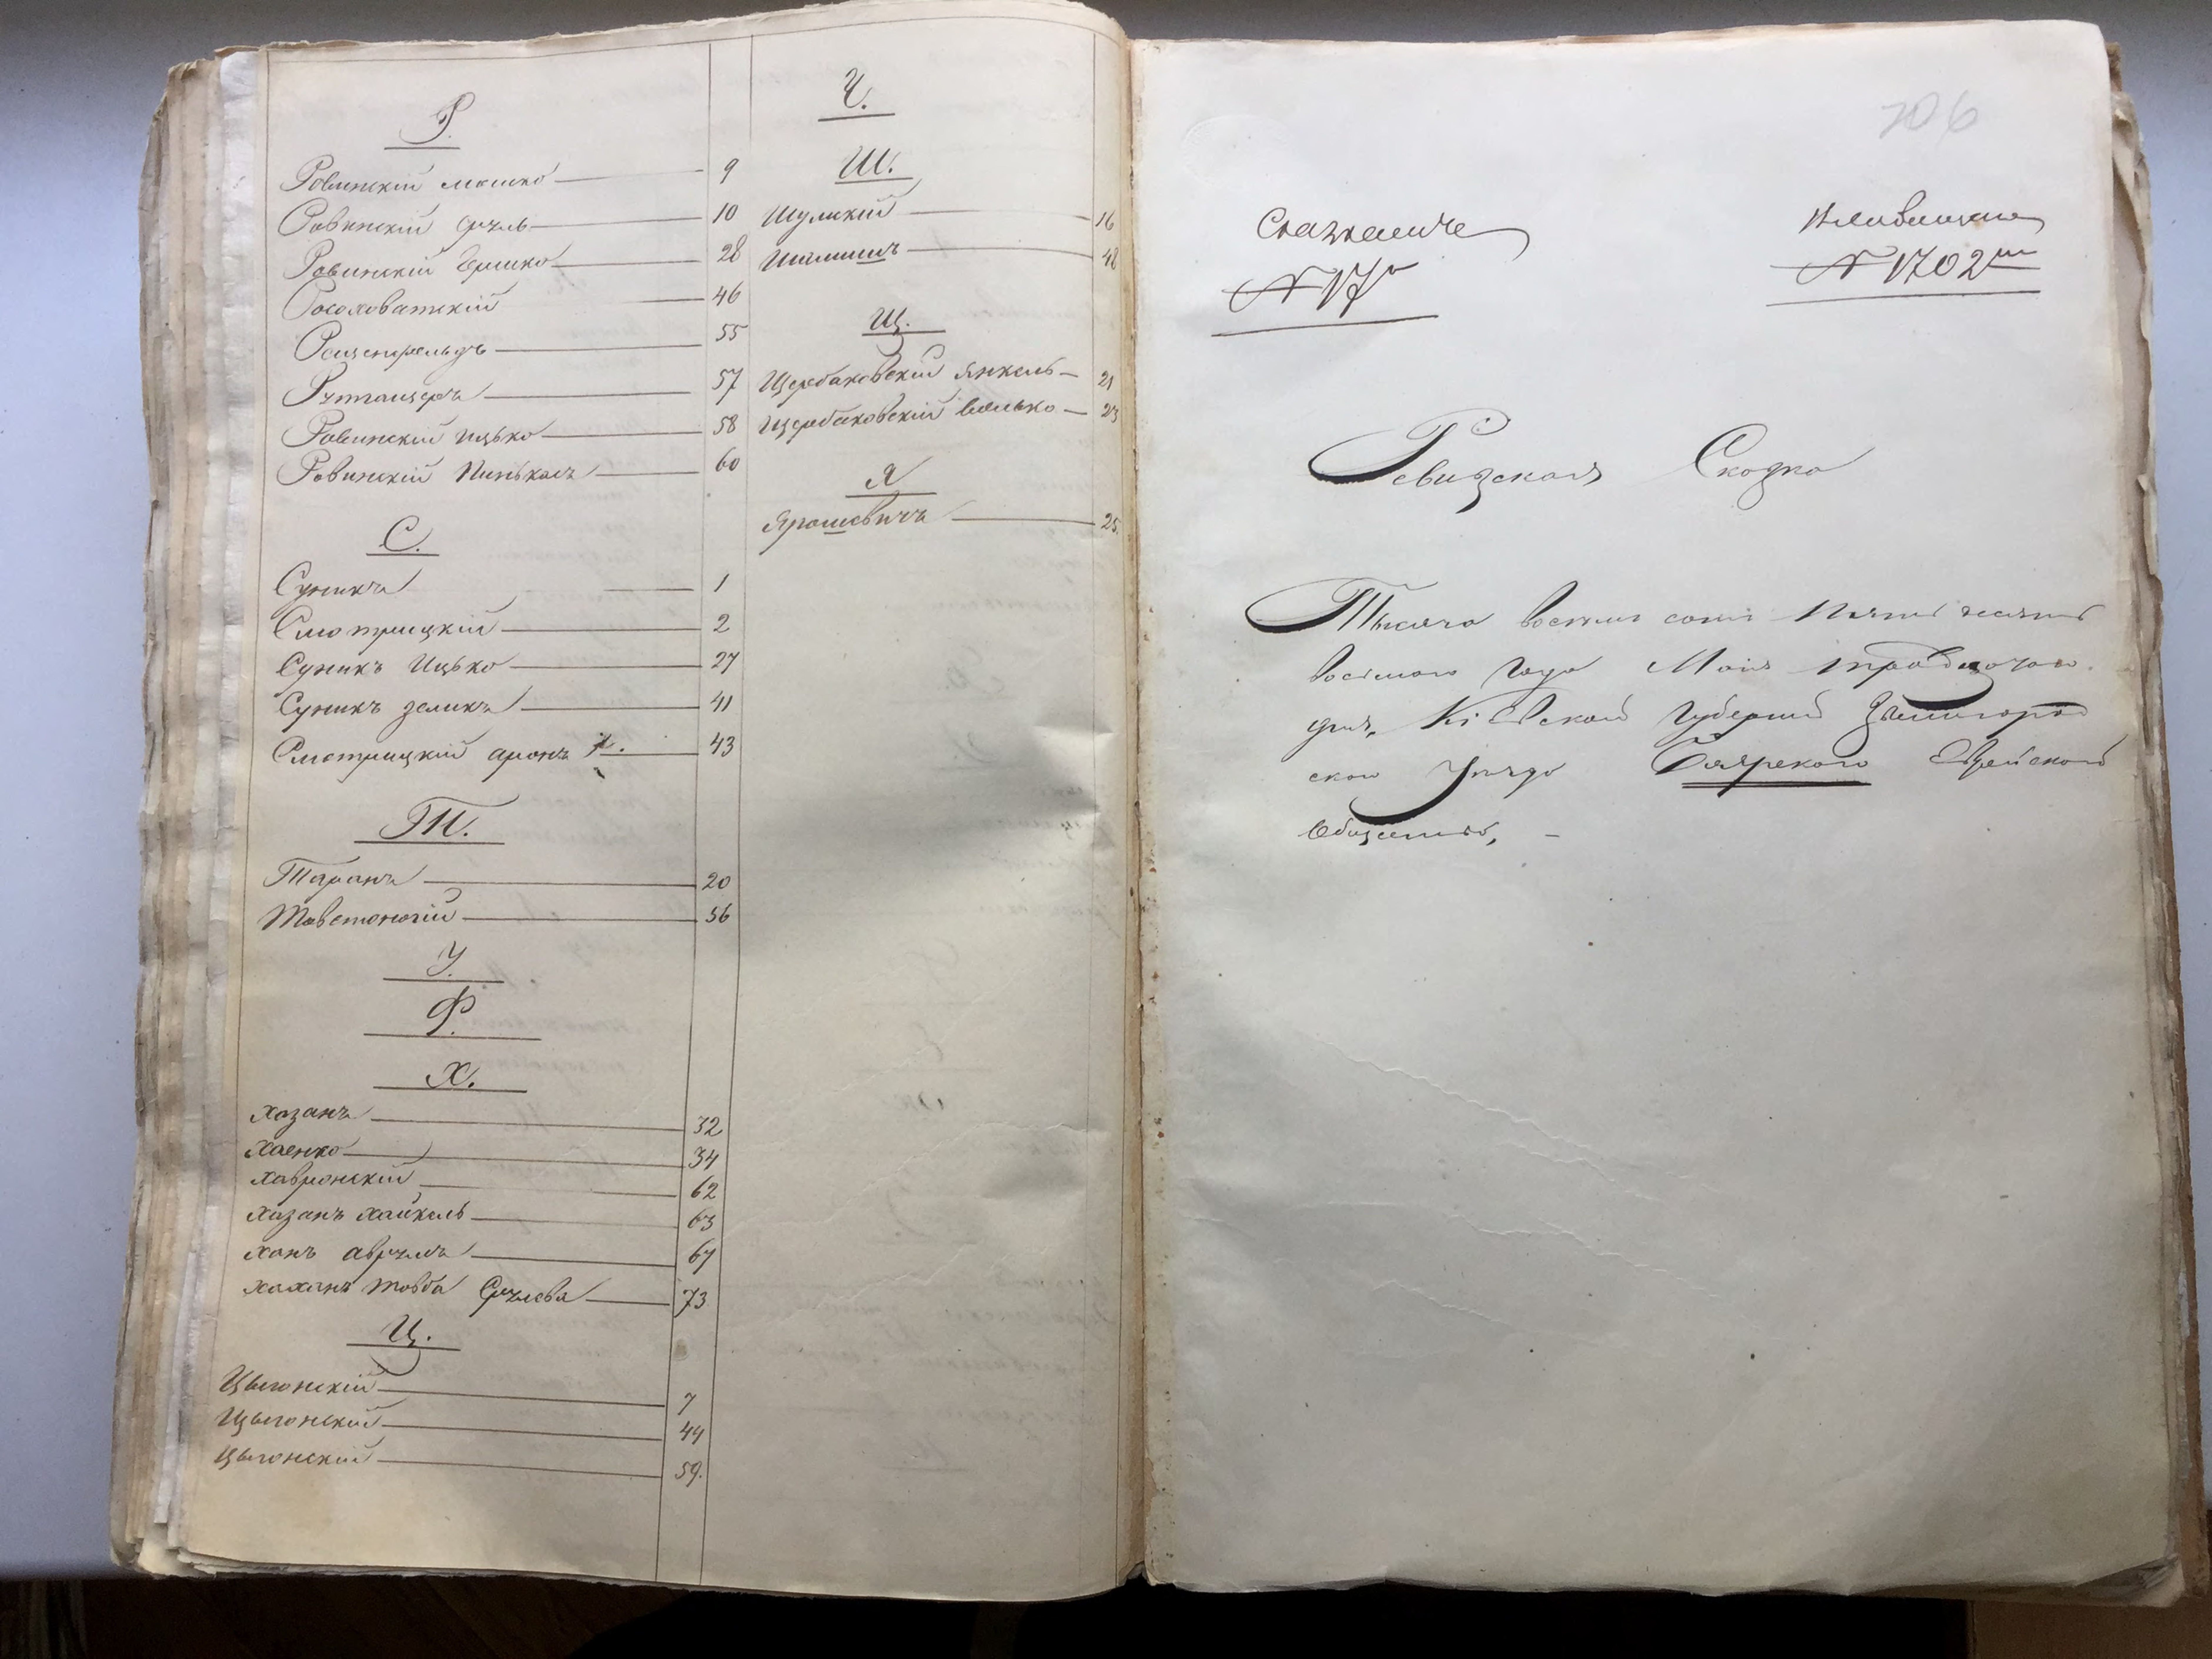 Р.
Ровинскій Мошко 9
Ровинскій Сруль 10
Ровинскій Ершко 28
Росоховатскій 46
Розенфельдъ 55
57
Ровинскій Ицько 58
Ровинскій Пинькасъ 60
С.
Суникъ 1
Смотрицкій 2
Суникъ Ицько 27
Суникъ Зеликъ 41
Смотрицкій Аронъ 43
Т.
Таранъ 20
Товстоногій 56
У.
Ф.
Х.
Хазанъ 32
Хаенко 34
Хавронскій 62
Хазанъ Хайкель 63
Ханъ Аврумъ 67
Товба Срулева 73
Ц.
Цыгонскій 7
Цыгонскій 44
Цыгонскій 59.
Ч.
Ш.
Шулискій 16
48
Щ.
Щербаковскій Янкель 21
Щербаковскій Волько 23
Я
Ярошевичъ 25.
706
№ 17
№ 1702
Ревизская Сказка
Тысяча восемь сотъ пятьдесятъ
восьмого года Маія тридцатого
дня, Кіевской Губерніи Звенигород
ского Уѣзда Боярского Еврейского
Общества, –